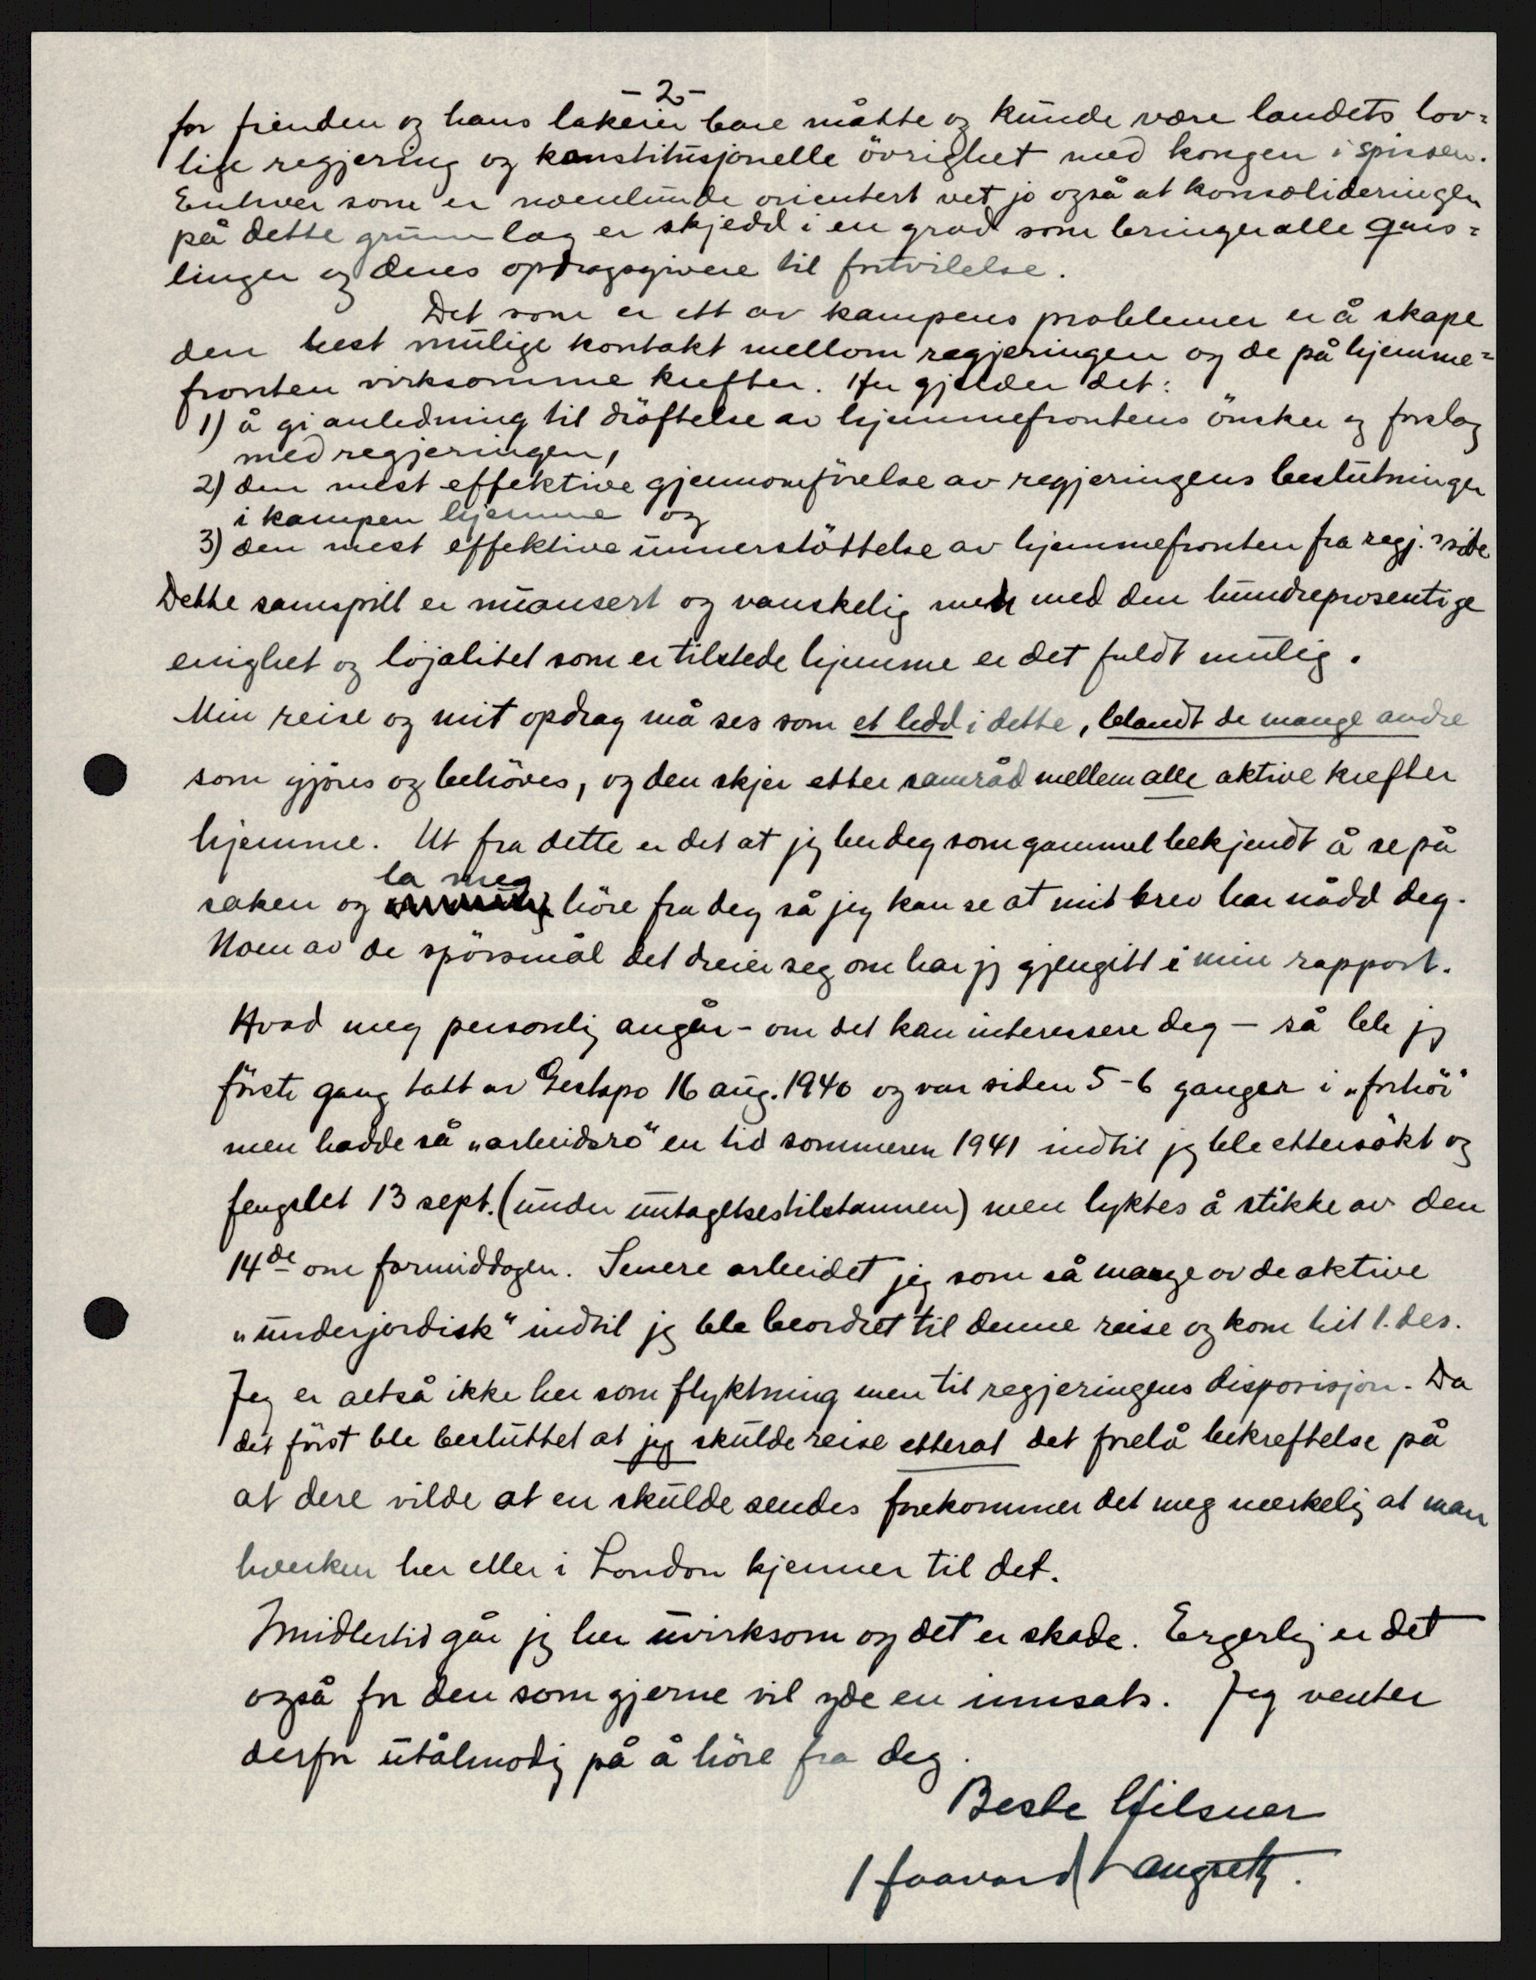 - 2 -
for fienden og hans lakeier bare måtte og kunde være landets lov=
lige regjering og konstitusjonelle övrighet med kongen i spissen.
Enhver som er noenlunde orientert vet jo også at konsolideringen
på dette grunnlag er skjedd i en grad som bringer alle quis=
linger og deres opdragsgivere til fortvilelse.
Det som er ett av kampens problemer er å skape
den best mulige kontakt mellom regjeringen og de på hjemme=
fronten virksomme krefter. Her gjelder det:
1) å gi anledning til dröftelse av hjemmefrontens önsker og forslag
med regjeringen,
2) den mest effektive gjennomförelse av regjeringens beslutninger
i kampen hjemme og
3) den mest effektive unnerstöttelse av hjemmefronten fra regj.s side
Dette samspill er nuansert og vanskelig men med den hundreprosentige
enighet og lojalitet som er tilstede hjemme er det fuldt mulig.
Min reise og mit opdrag må ses som et ledd i dette, blandt de mange andre
som gjöres og behöves, og den skjer etter samråd mellem alle aktive krefter
hjemme. Ut fra dette er det at jeg ber deg som gammel bekjendt å se på
la meg
saken og höre fra deg så jeg kan se at mit brev har nådd deg.
Noen av de spörsmål det dreier seg om har jeg gjengitt i min rapport.
Hvad meg personlig angår - om det kan interessere deg - så ble jeg
förste gang tatt av Gestapo 16 aug. 1940 og var siden 5-6 ganger i „forhör"
men hadde så „arbeidsro" en tid sommeren 1941 indtil jeg ble ettersökt og
fengslet 13 sept. (under untagelsestilstannen) men lyktes å stikke av den
14de om formiddagen. Senere arbeidet jeg som så mange av de aktive
„underjordisk" indtil jeg ble beordret til denne reise og kom hit 1. des.
Jeg er altså ikke her som flyktning men til regjeringens disposisjon. Da
det först ble besluttet at jeg skulde reise etterat det forelå bekreftelse på
at dere vilde at en skulde sendes forekommer det meg merkelig at man
hverken her eller i London kjenner til det.
Imidlertid går jeg her uvirksom og det er skade. Ergerlig er det
også for den som gjerne vil yde en innsats. Jeg venter
derfor utålmodig på å höre fra deg.
Beste hilsner
Haavard Langseth.